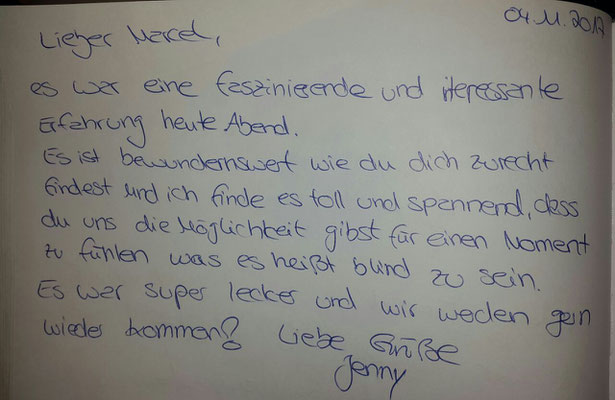 04.11.2017
Lieber Marcel,
es war eine faszinierende und iteressante
Erfahrung heute Abend.
Es ist bewundernswert wie du dich zurecht
findest und ich finde es toll und spannend, dass
du uns die Möglichkeit gibst für einen Moment
zu fühlen was es heißt blind zu sein.
Es war super lecker und wir weden gern
wieder kommen!
Liebe Grüße
Jenny